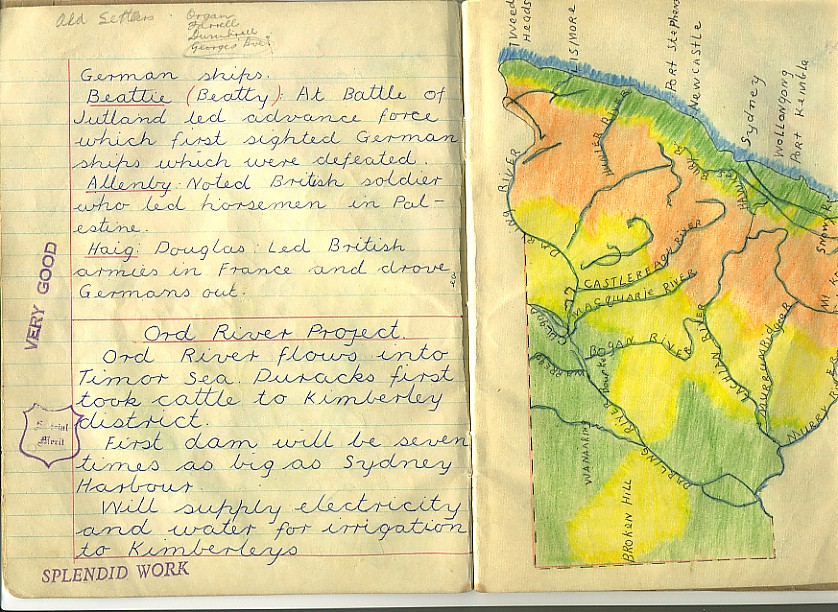 Old Settlers. Organ
Farrell
Georges Ave.
German ships.
Beattie (Beatty): At Battle of
Jutland led advance force
which first sighted German
ships which were defeated.
Allenby: Noted British soldier
who led horsemen in Pal-
estine.
Haig: Douglas: Led British
armies in France and drove
Germans out.
VERY GOOD
Ord River Project.
Ord River flows into
Timor Sea. Duracks first
took cattle to Kimberley
district.
Special
Merit
First dam will be seven
times as big as Sydney
Harbour.
Will supply electricity
and water for irrigation
to Kimberleys
SPLENDID WORK
Tweed
Heads
LISMORE
Port Stephens
NEWCASTLE
Sydney
WOLLONGONG
PORT KEMBLA
DARLING RIVER
RIVER
CASTLEREAGH RIVER
MACQUARIE RIVER
BOGAN RIVER
Bourke
LACHLAN RIVER
WANAARING
DARLING RIVER
BROKEN HILL
MURRY RIVER